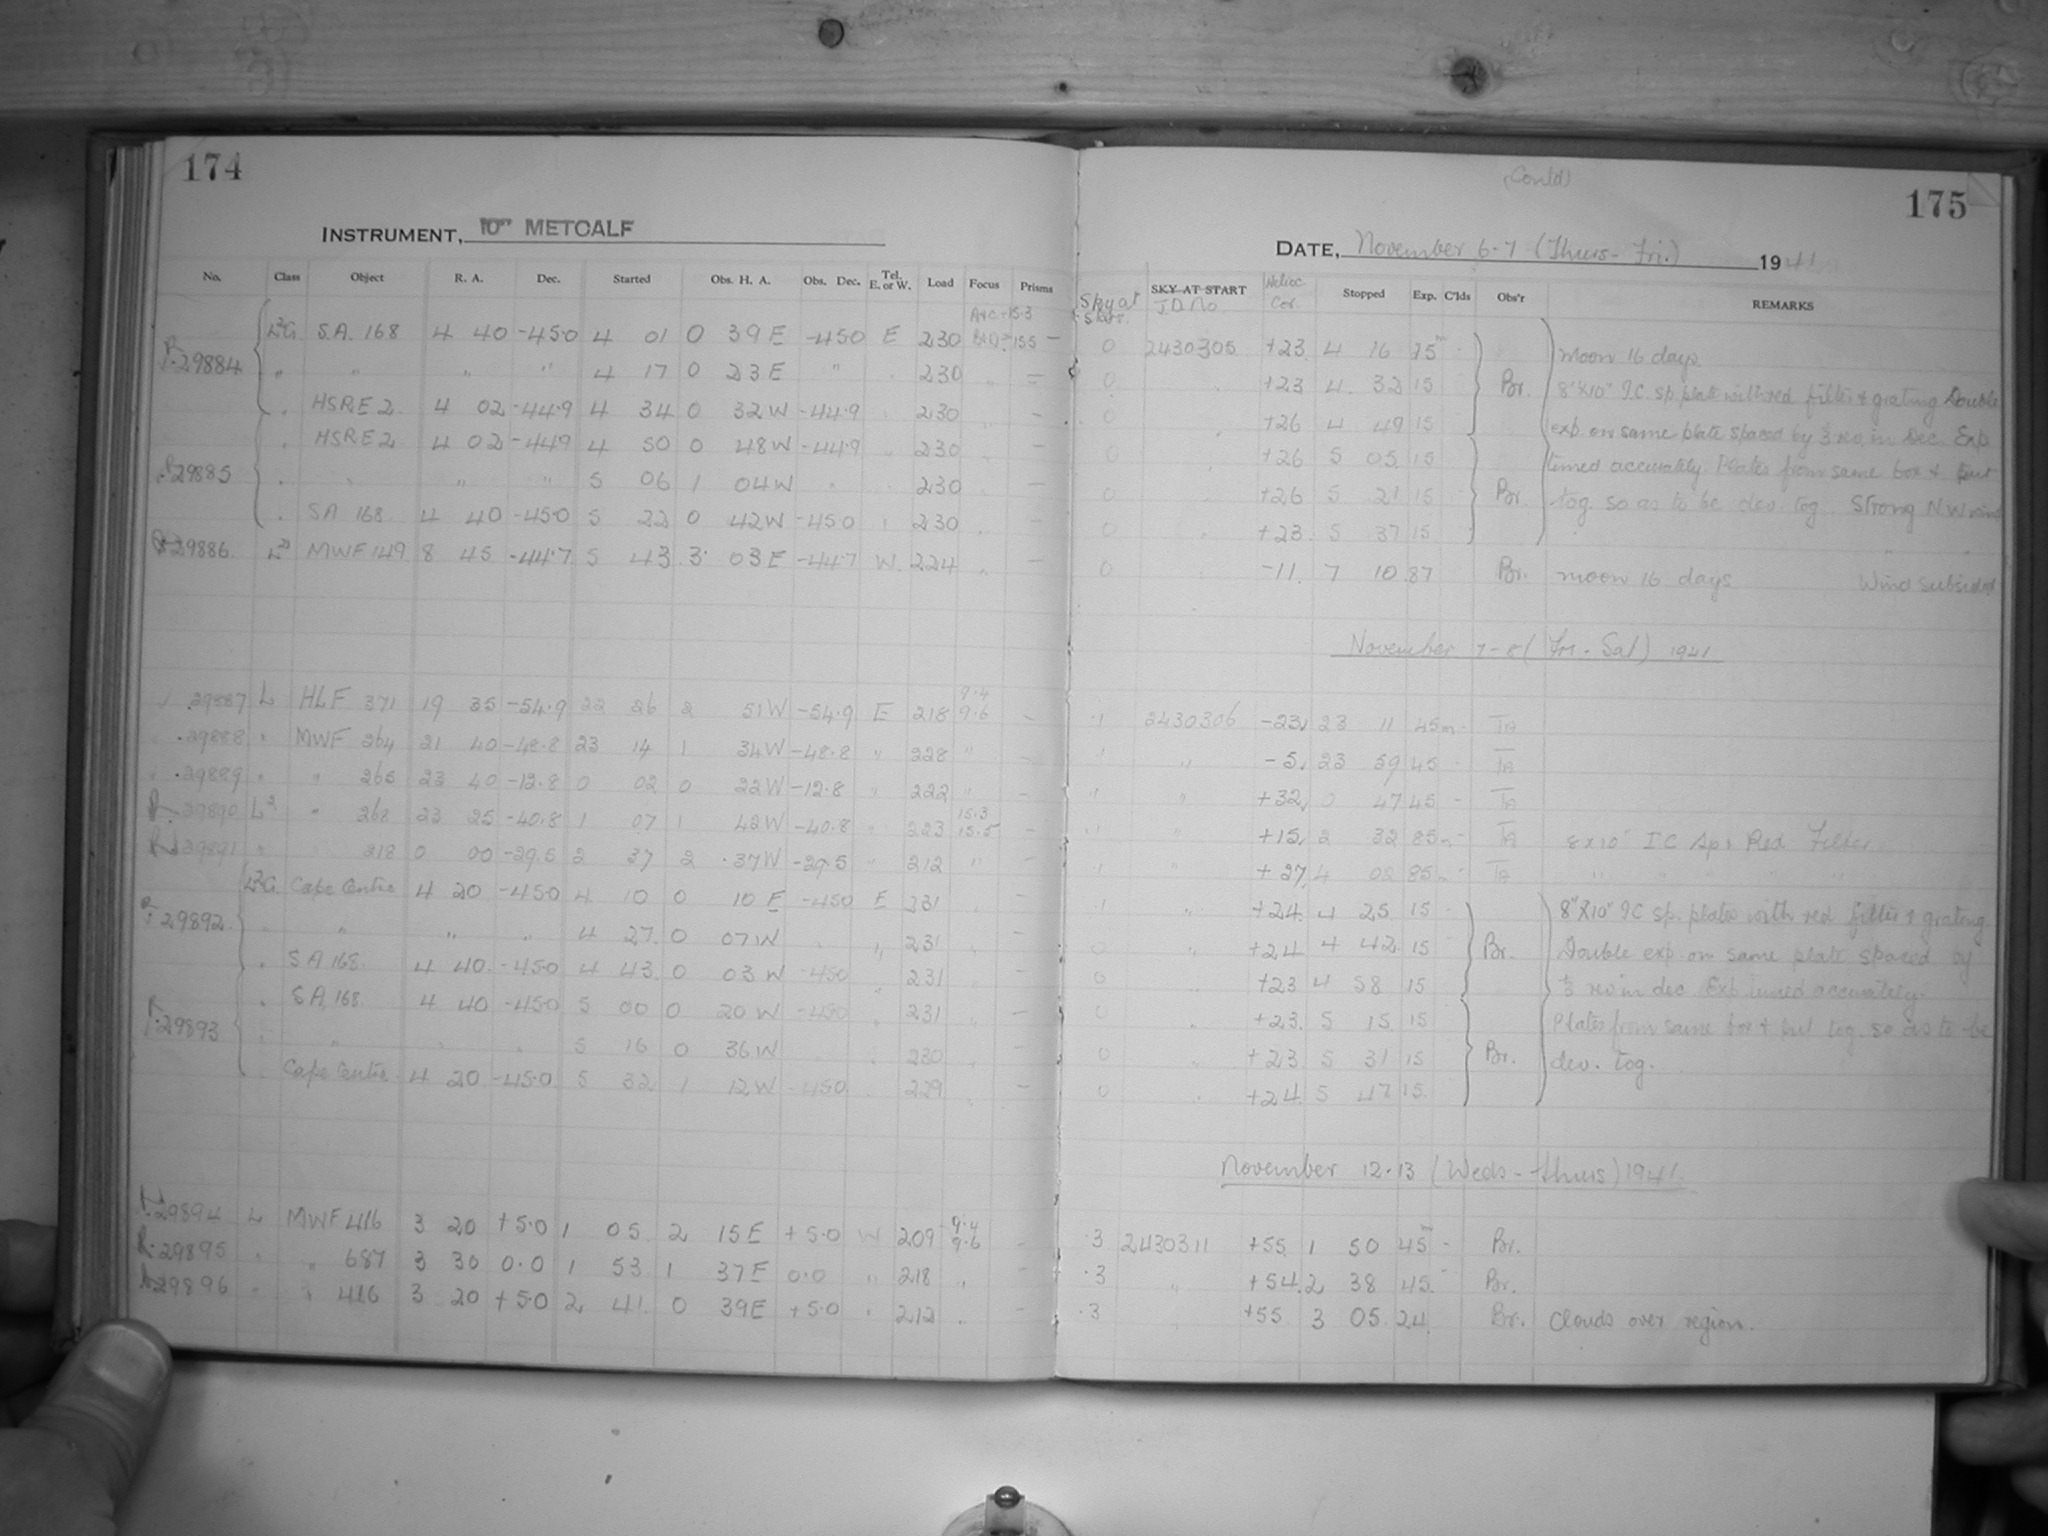 174
INSTRUMENT, 10" METCALF
No. Class Object R. A. Dec. Started Obs. H. A. Obs. Dec. Tel. E. or W. Load Focus Prisms
29884 S.A. 168 4 40 -45.0 4 01 0 39 E -45.0 E 230 15.5 -
" " " " 4 17 0 23 E " 230 -
HSRE 2 4 02 -44.9 4 34 0 32 W -44.9 230 -
HSRE 2 4 02 -44.9 4 50 0 48 W -44.9 230 -
29885 " " 5 06 1 04 W 230 -
SA 168 4 40 -45.0 5 22 0 42 W -45.0 230 -
29886 MWF 149 8 45 -44.7 5 43 3 03 E -44.7 W 224 -
29887 L HLF 371 19 35 -54.9 22 26 2 51 W -54.9 E 218 9.4 9.6 -
29888 " MWF 264 21 40 -48.8 23 14 1 34 W -48.8 " 228 " -
29889 " " 265 23 40 -12.8 0 02 0 22 W -12.8 " 222 " -
29890 L2 " 268 23 25 -40.8 1 07 1 42 W -40.8 " 223 15.3 15.5 -
29891 " 218 0 00 -29.5 2 37 2 37 W -29.5 " 212 " -
Cape Centre 4 20 -45.0 4 10 0 10 E -45.0 E 231 -
29892 " " " 4 27 0 07 W " 231 -
SA 168 4 40 -45.0 4 43 0 03 W -45.0 231 -
SA 168 4 40 -45.0 5 00 0 20 W -45.0 231 -
29893 " 5 16 0 36 W 230 -
Cape Centre 4 20 -45.0 5 32 1 12 W -45.0 229 -
29894 L MWF 416 3 20 +5.0 1 05 2 15 E +5.0 W 209 9.4 9.6 -
29895 " " 687 3 30 0.0 1 53 1 37 E 0.0 " 218 " -
29896 " " 416 3 20 +5.0 2 41 0 39 E +5.0 " 212 " -
(Contd)
175
DATE, November 6-7 (Thurs-Fri.) 1941
Sky at Start SKY AT START J.D. No Helioc Cor. Stopped Exp. C'lds Obs'r REMARKS
0 2430305 +23 4 16 15m moon 16 days
0 +23 4 32 15 Br. 8"X10" I.C. sp. plate with red filter & grating Double
0 +26 4 49 15 exp. on same plate spaced by rev. in Dec. Exp
0 +26 5 05 15 timed accurately. Plates from same box & put
0 +26 5 21 15 Br. tog. so as to be dev. tog. Strong NW wind
0 +23 5 37 15
0 -11 7 10 87 Br. moon 16 days Wind subsided
November 7-8 (Fri. Sat) 1941
.1 2430306 -23 23 11 45m - TA
.1 " -5 23 59 45 - TA
" " +32 0 47 45 - TA
.1 " +15 2 32 85m - TA 8x10" I C Sp. Red Filter
.1 " +27 4 02 85m - TA " " " " "
.1 " +24 4 25 15 8"X10" IC sp. plates with red filter & grating
0 " +24 4 42 15 Br. Double exp. on same plate spaced by
0 +23 4 58 15 rev in dec Exp timed accurately.
0 +23 5 15 15 Plates from same box & put tog. so as to be
0 +23 5 31 15 Br. dev. tog.
0 +24 5 47 15
November 12-13 (Weds-Thurs) 1941.
.3 2430311 +55 1 50 45m - Br.
.3 " +54 2 38 45 - Br.
.3 +55 3 05 24 Br. Clouds over region.